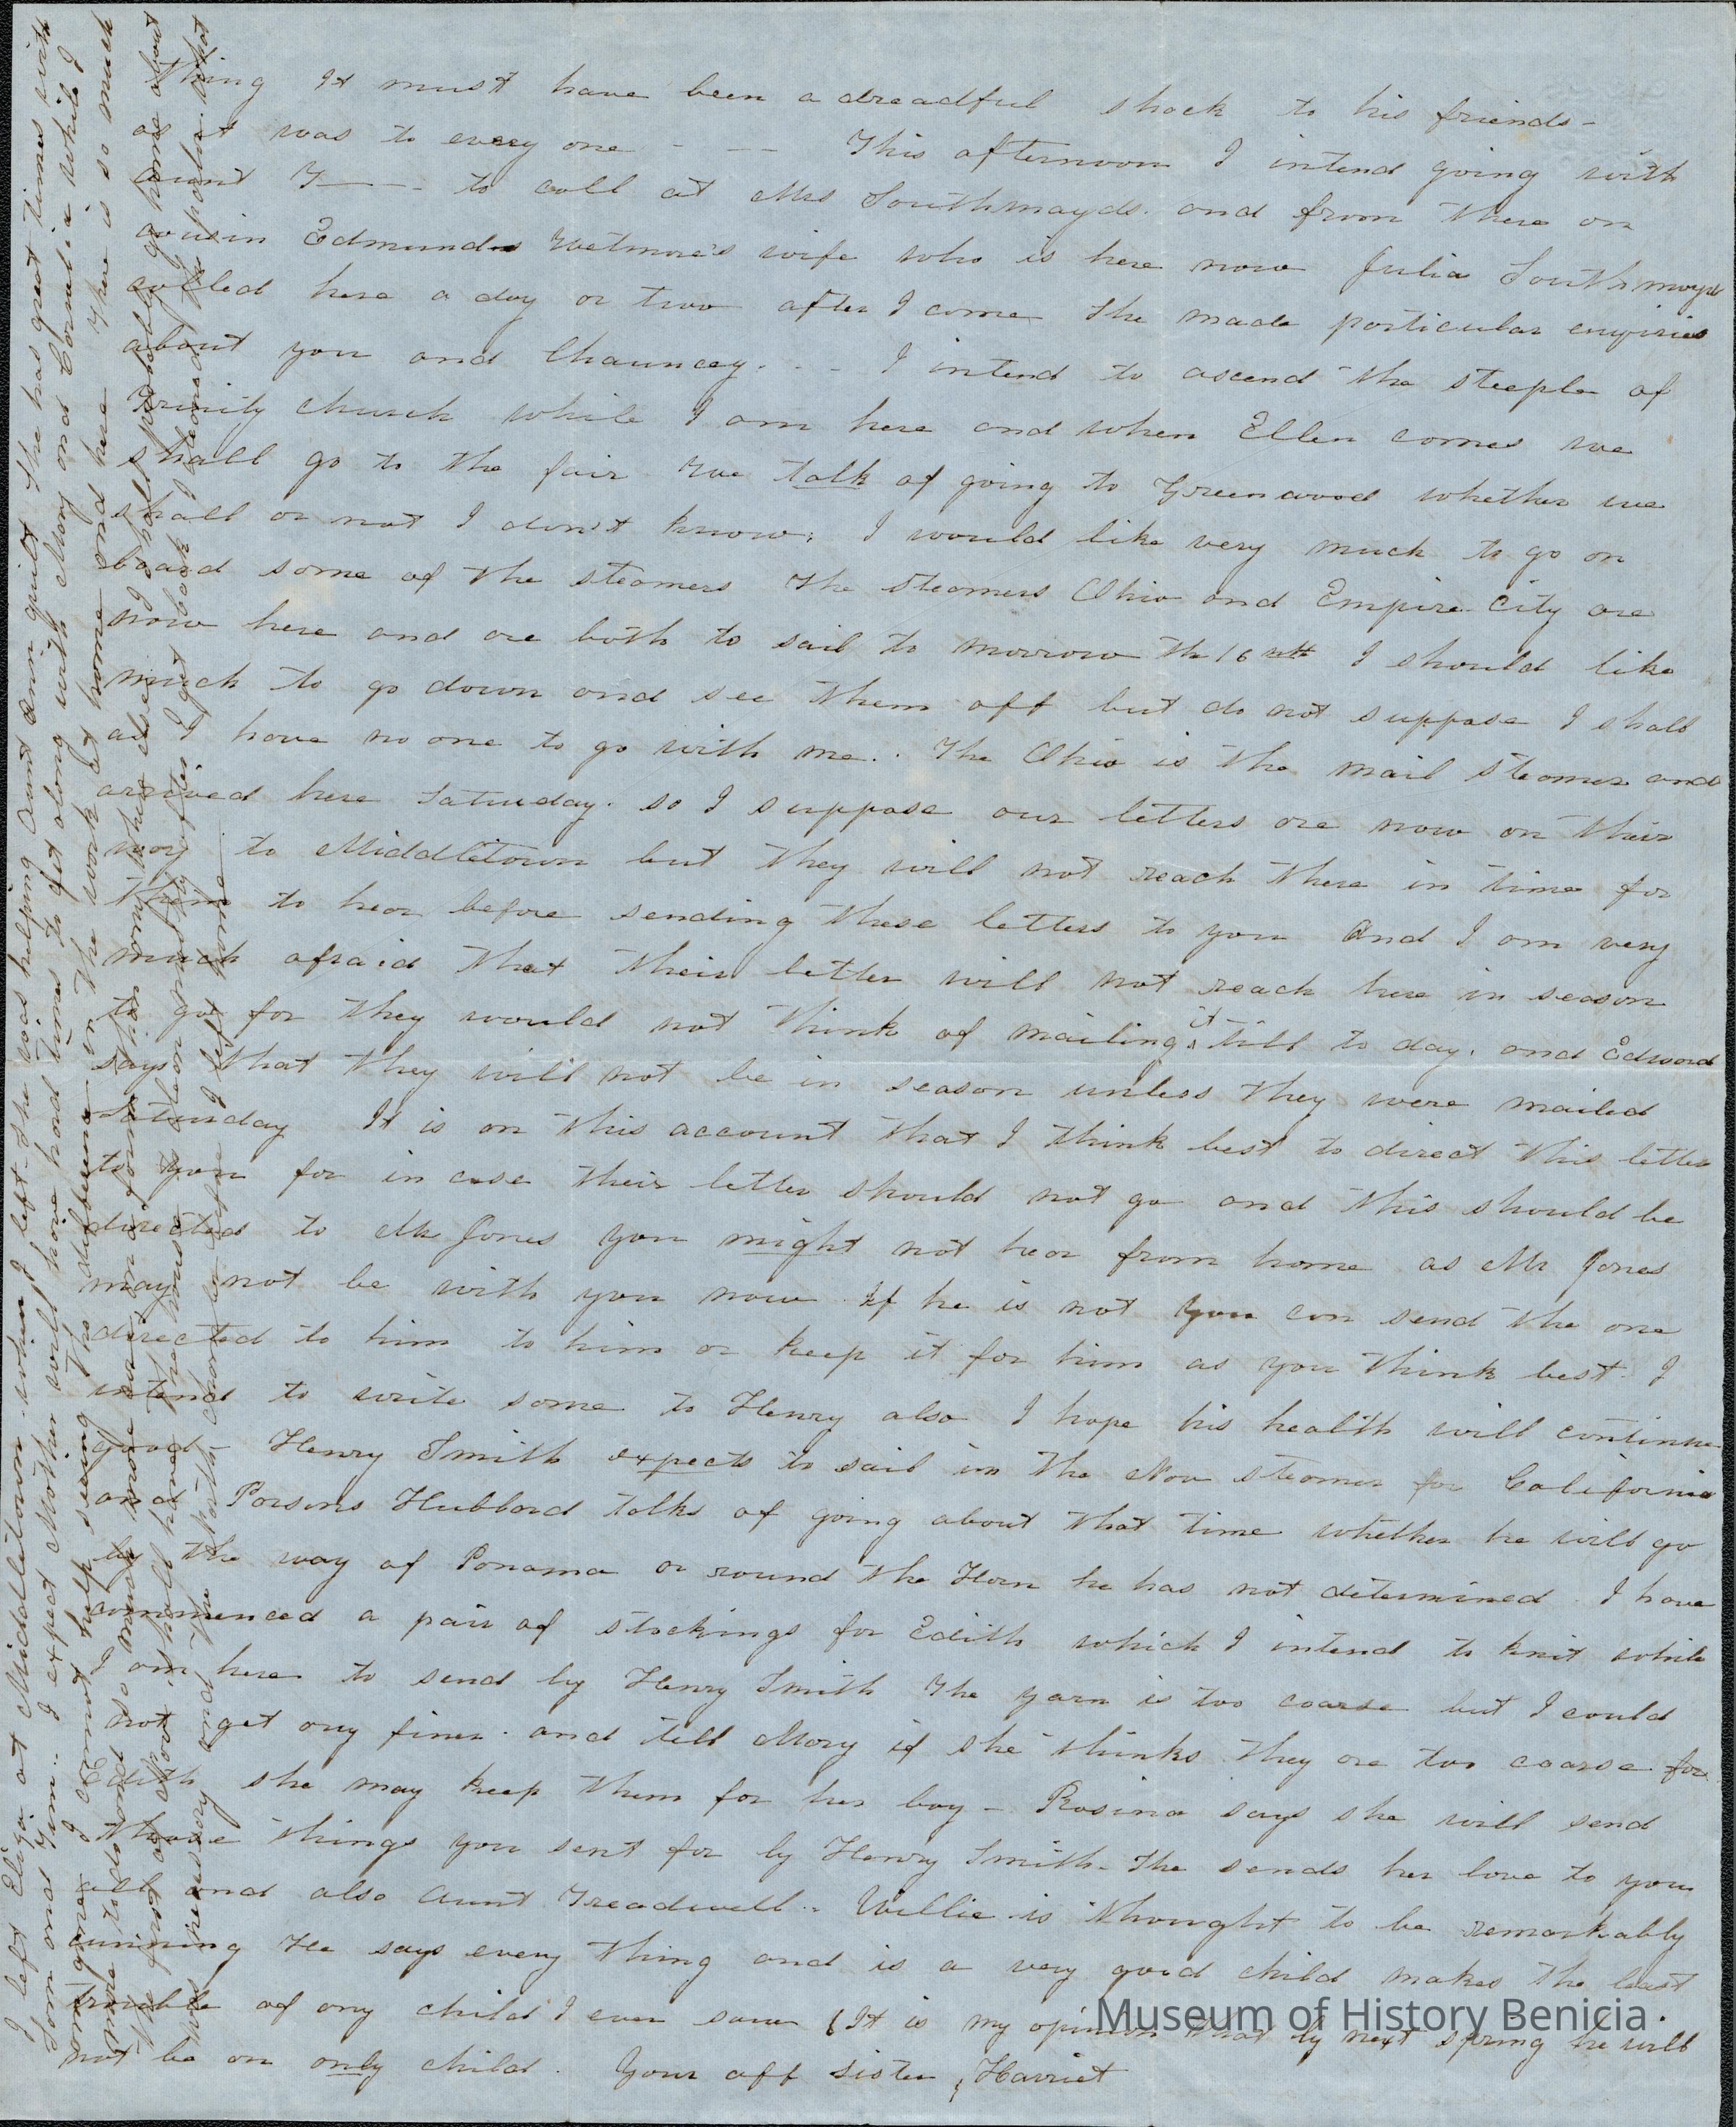 thing It must have been a dreadful shock to his friends -
as it was to every one - - - This afternoon I intend going with
aunt T - - - to call at Mrs Southmayds. and from there on
cousin Edmund Wetmore's wife who is here now Julia Southmayd
called here a day or two after I come She made particular enquiries
about you and Chauncey. - - I intend to ascend the steeple of
Trinity church while I am here and when Ellen comes we
shall go to the fair We talk of going to Greenwood whether we
shall or not I don't know. I would like very much to go on
board some of the steamers The steamers Ohio and Empire City are
now here and are both to sail to morrow the 16 I should like
much to go down and see them off but do not suppose I shall
as I have no one to go with me. The Ohio is the mail steamer and
arrived here Saturday. so I suppose our letters are now on their
way to Middletown but they will not reach there in time for
them to hear before sending these letters to you And I am very
much afraid that their letter will not reach here in season
to go for they would not think of mailing it till to day. and Edward
says that they will not be in season unless they were mailed
Saturday It is on this account that I think best to direct this letter
to you for in case their letter should not go and this should be
directed to Mr Jones you might not hear from home as Mr Jones
may not be with you now If he is not you can send the one
directed to him to him or keep it for him as you think best. I
intend to write some to Henry also I hope his health will continue
good - Henry Smith expects to sail in the Nov steamer for California
and Parsons Hubbard talks of going about that time whether he will go
by the way of Panama or round the Horn he has not determined. I have
commenced a pair of stockings for Edith which I intend to knit while
I am here to send by Henry Smith The yarn is too coarse but I could
not get any finer. and tell Mary if she thinks they are too coarse for
Edith she may keep them for her boy - Rosina says she will send
those things you sent for by Henry Smith. She sends her love to you
all and also Aunt Treadwell. Willie is thought to be remarkably
cunning He says every thing and is a very good child makes the least
trouble of any child I ever saw (It is my opinion that by next spring he will
not be an only child. Your aff sister, Harriet
I left Eliza at Middletown when I left. She was helping Aunt Ann quilt She has great times with
Sam and Jim. I expect Mother will have hard times to get along with Mary and Cornelia while I
am gone. I cannot help seeing the difference in the work at home and here There is so much
more to do and so much more
I shall probably go home about
the first of Nov. I shall have the house to clean
after I get back I learned to
and the
before I left home
Museum of History Benicia